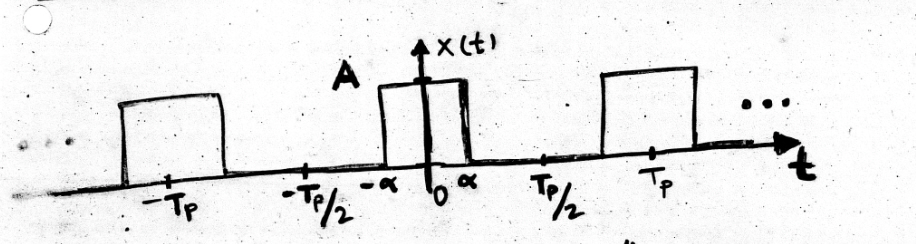 x(t)
A
...
...
-Tp
-Tp/2
-α
0
α
Tp/2
Tp
t